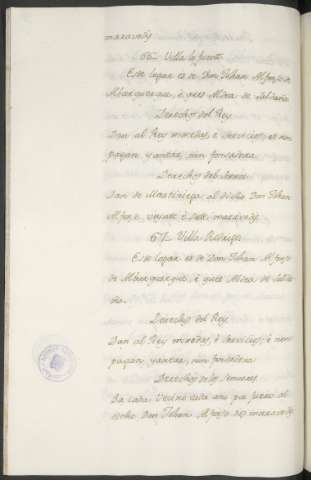 maravedis
66 Villa la fuente
Este logar es de Don Johan Alfonso de
Alburquerque, è que es Mda. de Saldaña
Derechos del Rey
Dan al Rey moneda, è servicios, et non
pagan yantar, nin fonsadera
Derechos del Señor
Dan de Martiniega al dicho Don Johan
Alfonso, veinte è siete maravedis.
67 Villa
Este logar es de Don Johan Alfonso
de Alburquerque, è que es Mda. de Salda
ña.
Derechos del Rey
Dan al Rey monedas, è servicios, è non
pagan yantar, nin fonsadera
Derechos de los Señores
Da cada Vecino cada año por fuero al
dicho Don Johan Alfonso maravedis